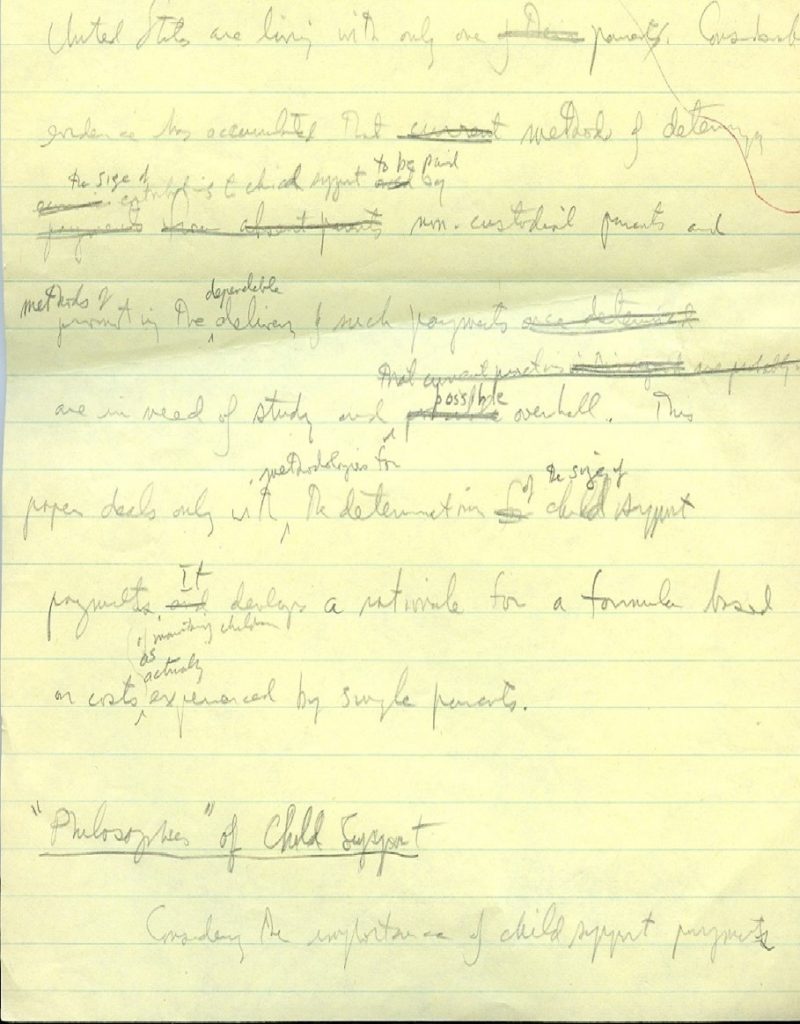 United States are living with only one of their parents. Considerable
evidence has accumulated that current methods of determining
the size of child support owed to be paid by
payments from absent parents non-custodial parents and
methods of dependable
promoting the delivery of such payments once determined
that current practices are probably
are in need of study and possible overhall. This
methodologies for of the size of
paper deals only with the determination for child support
payments. It and develops a rationale for a formula based
of maintaining children
as
actually
on costs experienced by single parents.
"Philosophies" of Child Support
Considering the importance of child support payments